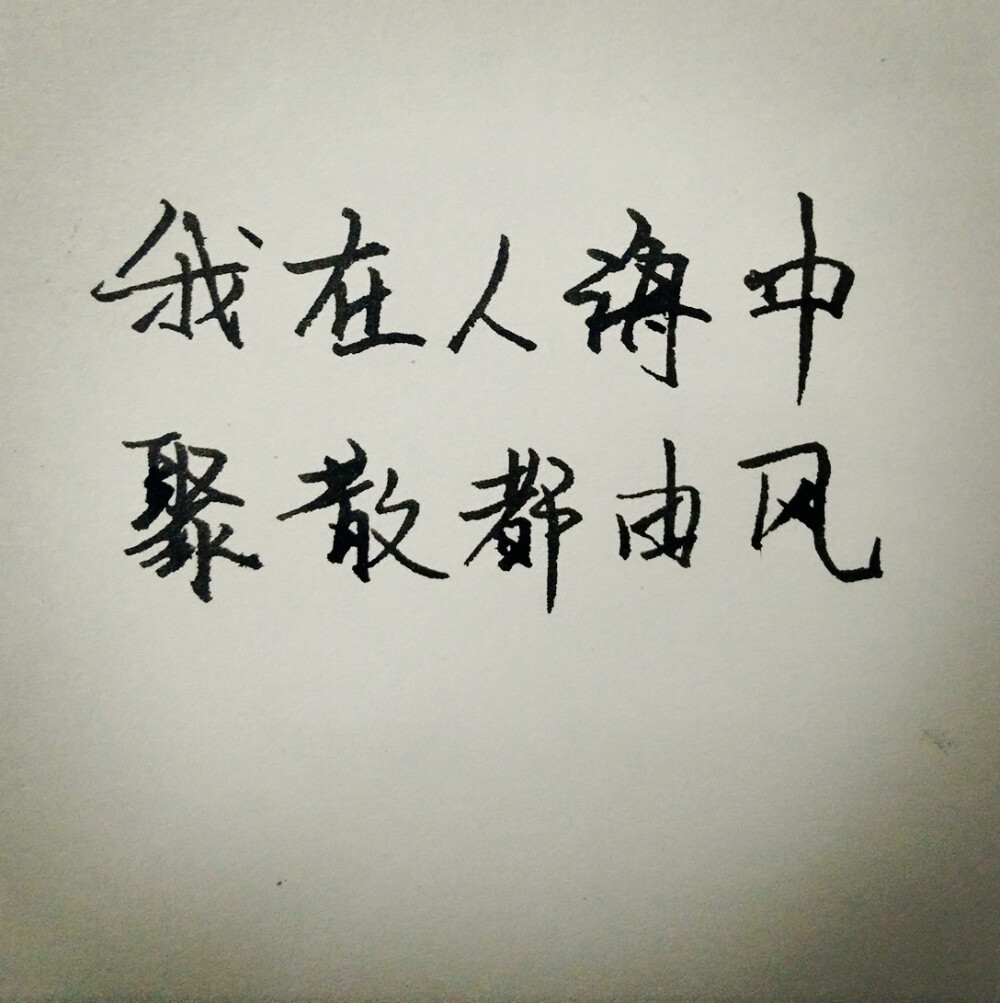 我在人海中
聚散都由风